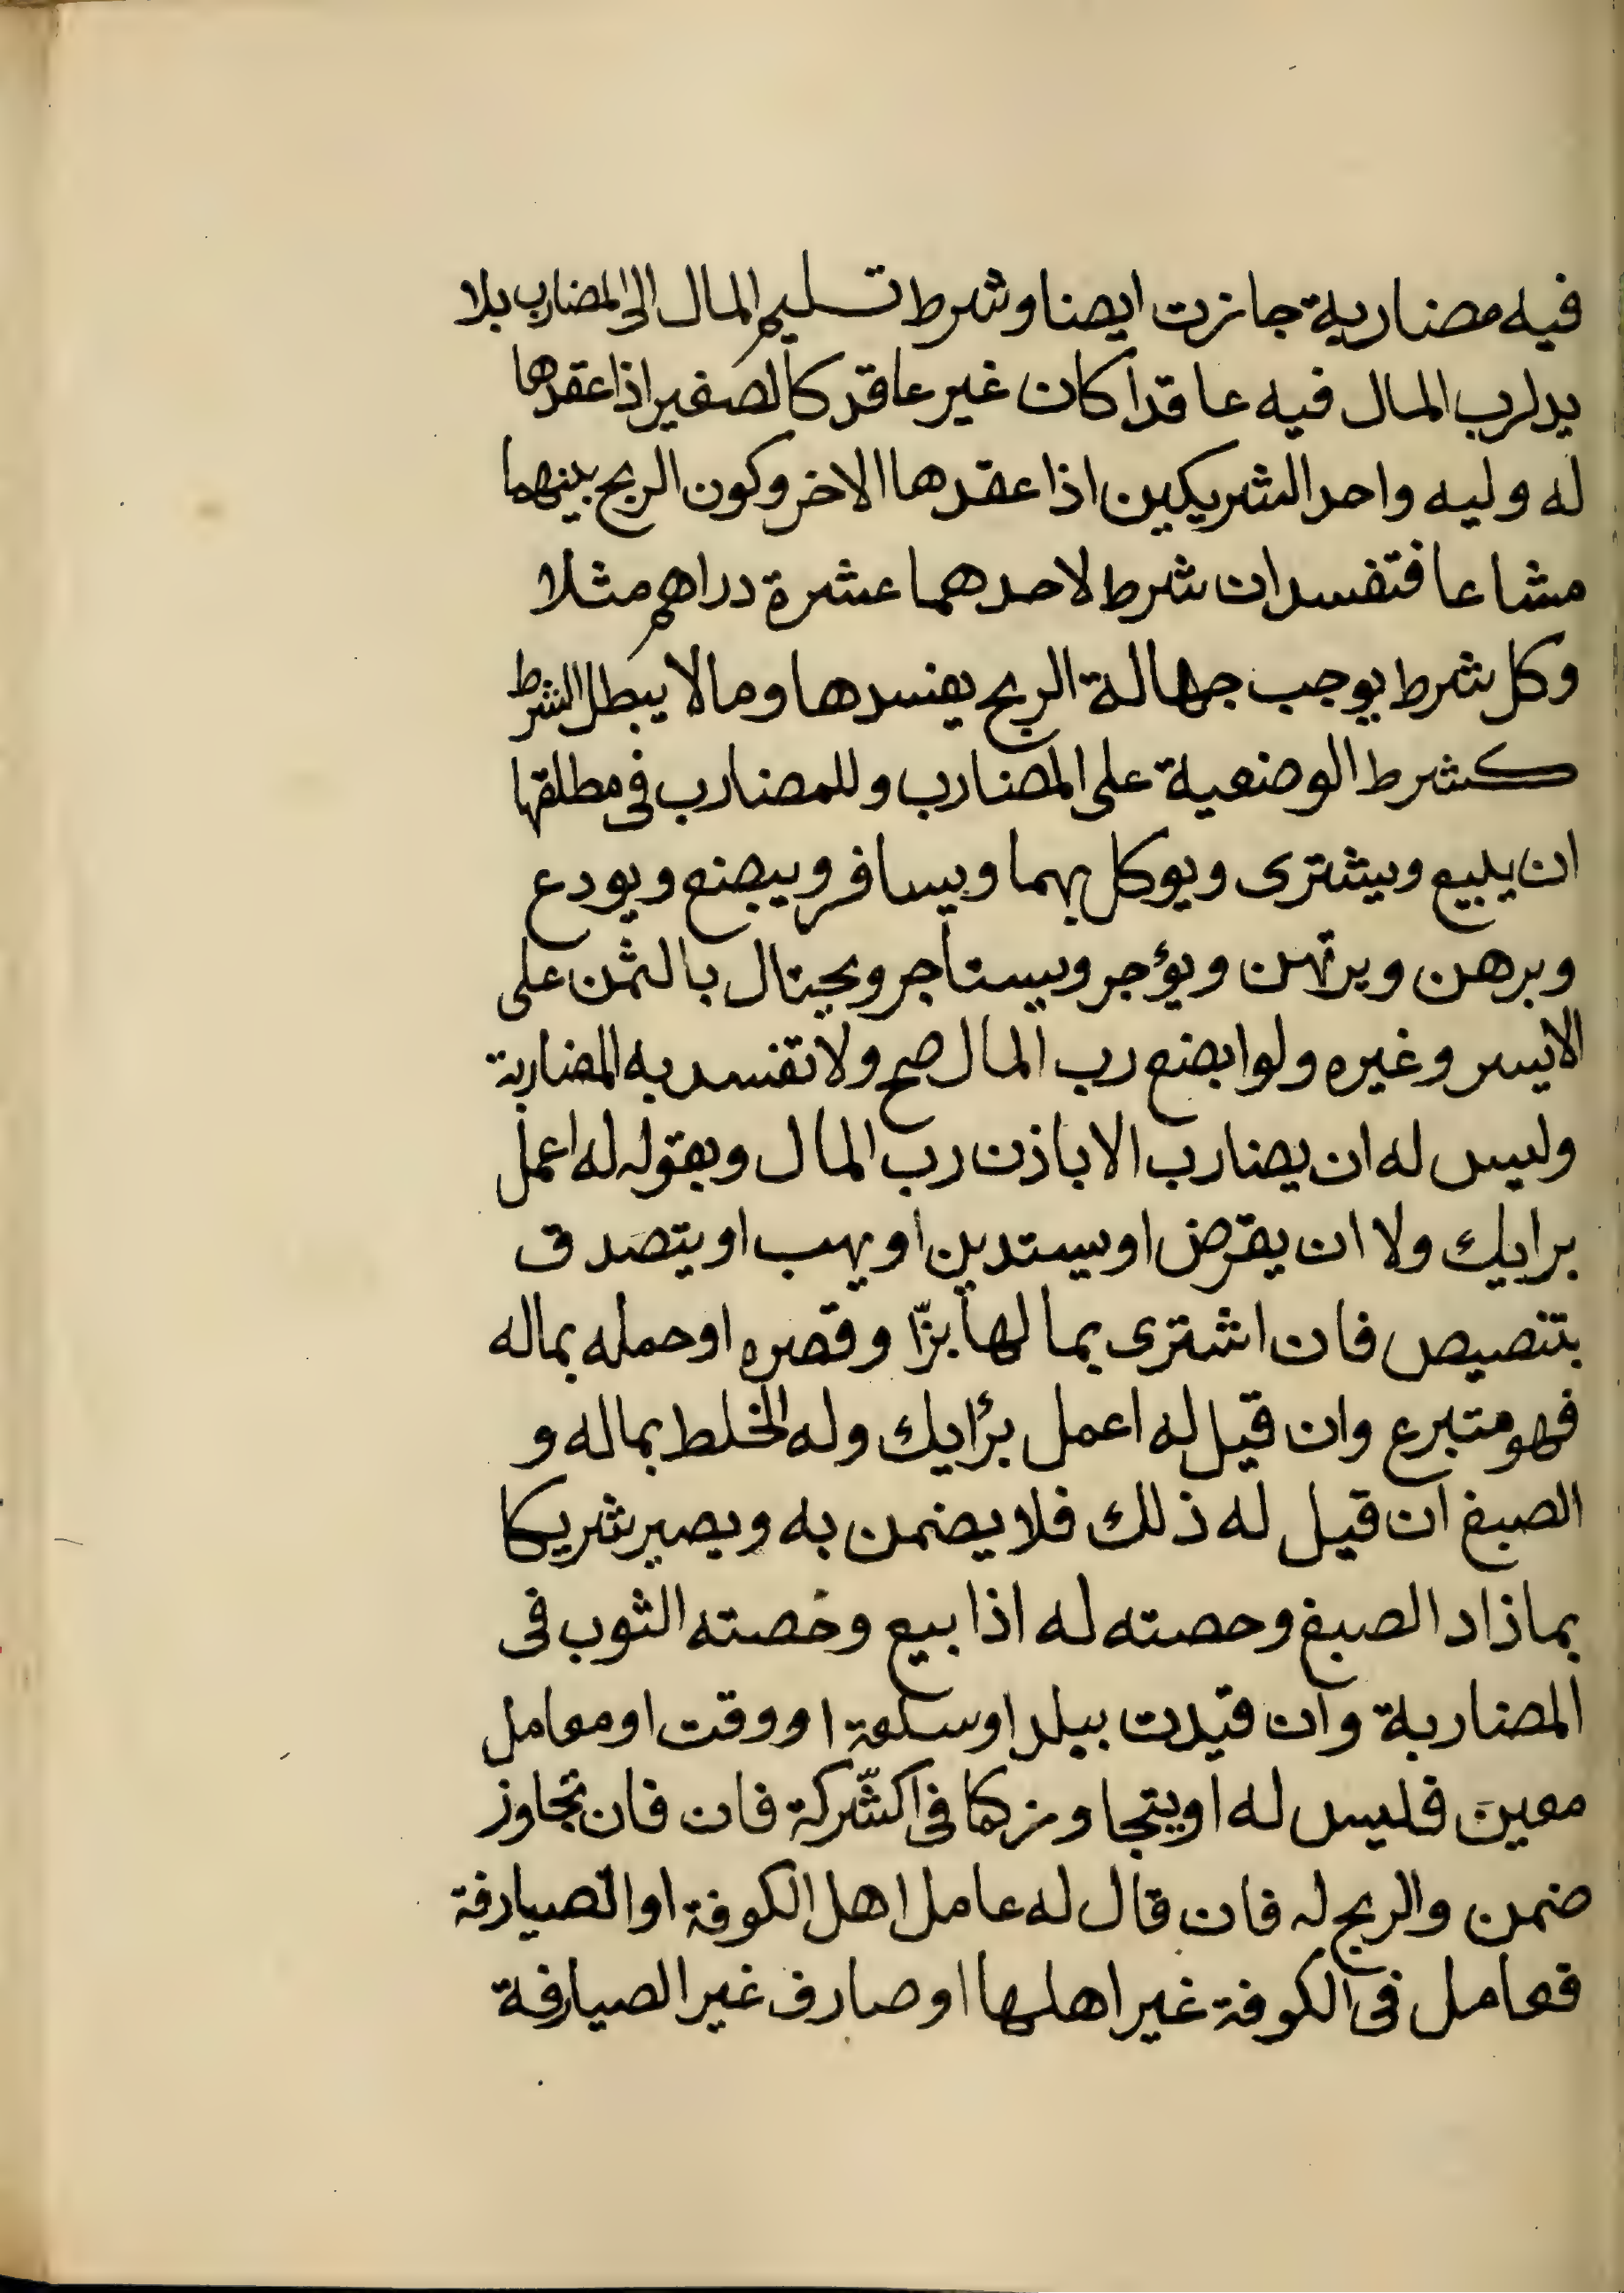 فيه مضاربة جازت ايضا وشرط تسليم المال الى المضارب بلا
يد لرب المال فيه عاقدا كان غير عاقد كالصغير اذا عقدها
له وليه واحد الشريكين اذا عقدها الاخر وكون الربح بينهما
مشاعا فتفسد ان شرط لاحدهما عشرة دراهم مثلا
وكل شرط يوجب جهالة الربح يفسدها وما لا يبطل الشرط
كشرط الوضعية على المضارب وللمضارب فى مطلقها
ان يبيع ويشترى ويوكل بهما ويسافر ويبضع ويودع
ويرهن ويرتهن ويؤجر ويستأجر ويحتال بالثمن على
الايسر وغيره ولو ابضع رب المال صح ولا تفسد به المضاربة
وليس له ان يضارب الا باذن رب المال وبقوله له اعمل
برايك ولا ان يقرض او يستدين او يهب او يتصدق
بتنصيص فان اشترى بمالها بزّا وقصره او حمله بماله
فهو متبرع وان قيل له اعمل برأيك وله الخلط بماله و
الصبغ ان قيل له ذلك فلا يضمن به ويصير شريكا
بما زاد الصبغ وحصته له اذا بيع وخصته الثوب فى
المضاربة وان قيدت ببلد او سلعة او وقت او معامل
معين فليس له او يتجاوز كما فى اكشّركة فان فان تجاوز
ضمن والربح له فان قال له عامل اهل الكوفة او الصيارفة
فعامل فى الكوفة غير اهلها او صارف غير الصيارفة